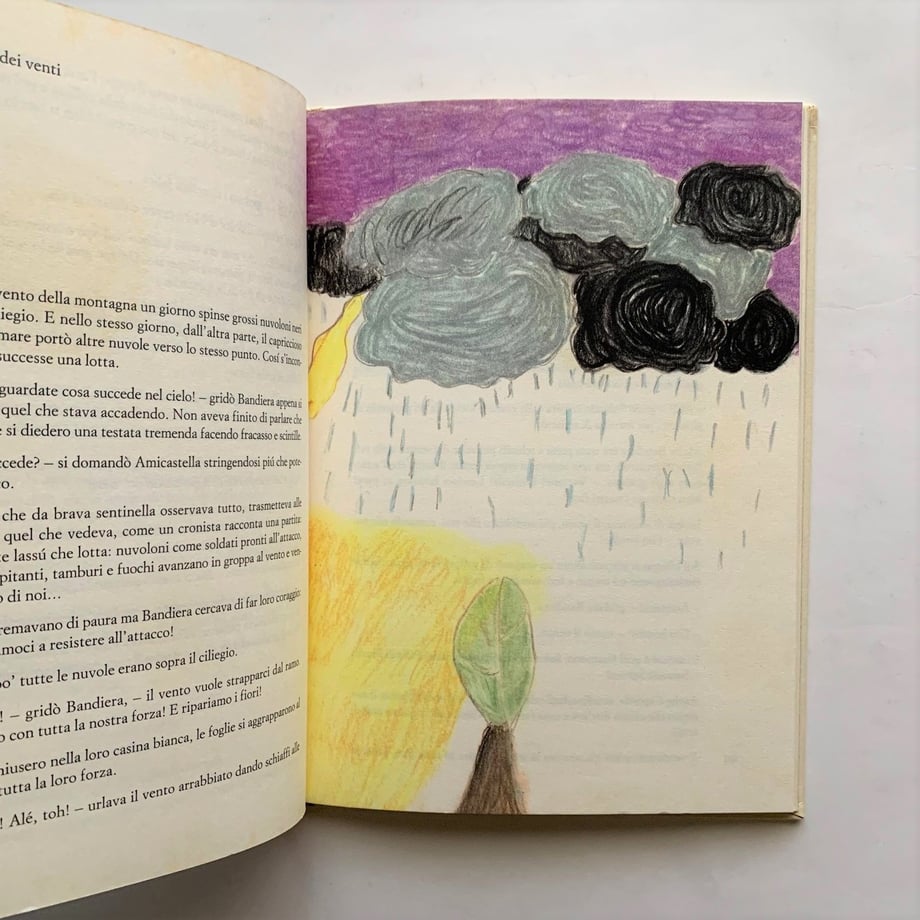 dei venti
vento della montagna un giorno spinse grossi nuvoloni neri
liegio. E nello stesso giorno, dall'altra parte, il capriccioso
mare portò altre nuvole verso lo stesso punto. Cosí s'incon-
successe una lotta.
guardate cosa succede nel cielo! – gridò Bandiera appena si
quel che stava accadendo. Non aveva finito di parlare che
e si diedero una testata tremenda facendo fracasso e scintille.
ccede? – si domandò Amicastella stringendosi piú che pote-
co.
che da brava sentinella osservava tutto, trasmetteva alle
quel che vedeva, come un cronista racconta una partita:
te lassú che lotta: nuvoloni come soldati pronti all'attacco,
pitanti, tamburi e fuochi avanzano in groppa al vento e ven-
o di noi...
remavano di paura ma Bandiera cercava di far loro coraggio:
amoci a resistere all'attacco!
po' tutte le nuvole erano sopra il ciliegio.
! – gridò Bandiera, – il vento vuole strapparci dal ramo.
o con tutta la nostra forza! E ripariamo i fiori!
hiusero nella loro casina bianca, le foglie si aggrapparono al
tutta la loro forza.
! Alé, toh! – urlava il vento arrabbiato dando schiaffi alle